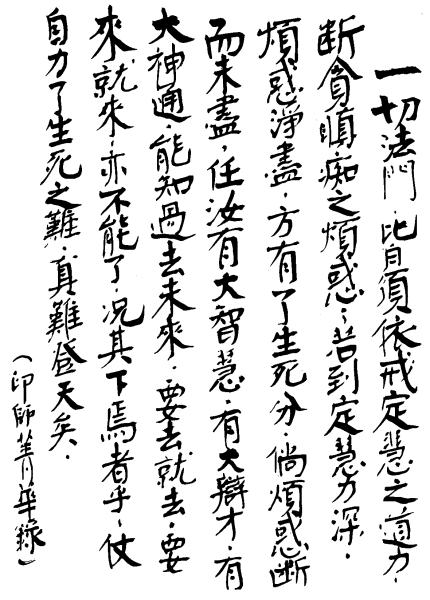 一切法門，皆須依戒定慧之道力，
断貪瞋痴之煩惑；若到定慧力深，
煩惑淨盡，方有了生死分，倘煩惑断
而未盡，任汝有大智慧，有大辯才，有
大神通，能知過去未來，要去就去，要
來就來，亦不能了，况其下焉者乎，仗
自力了生死之難，真難登天矣．
（印師菁華錄）